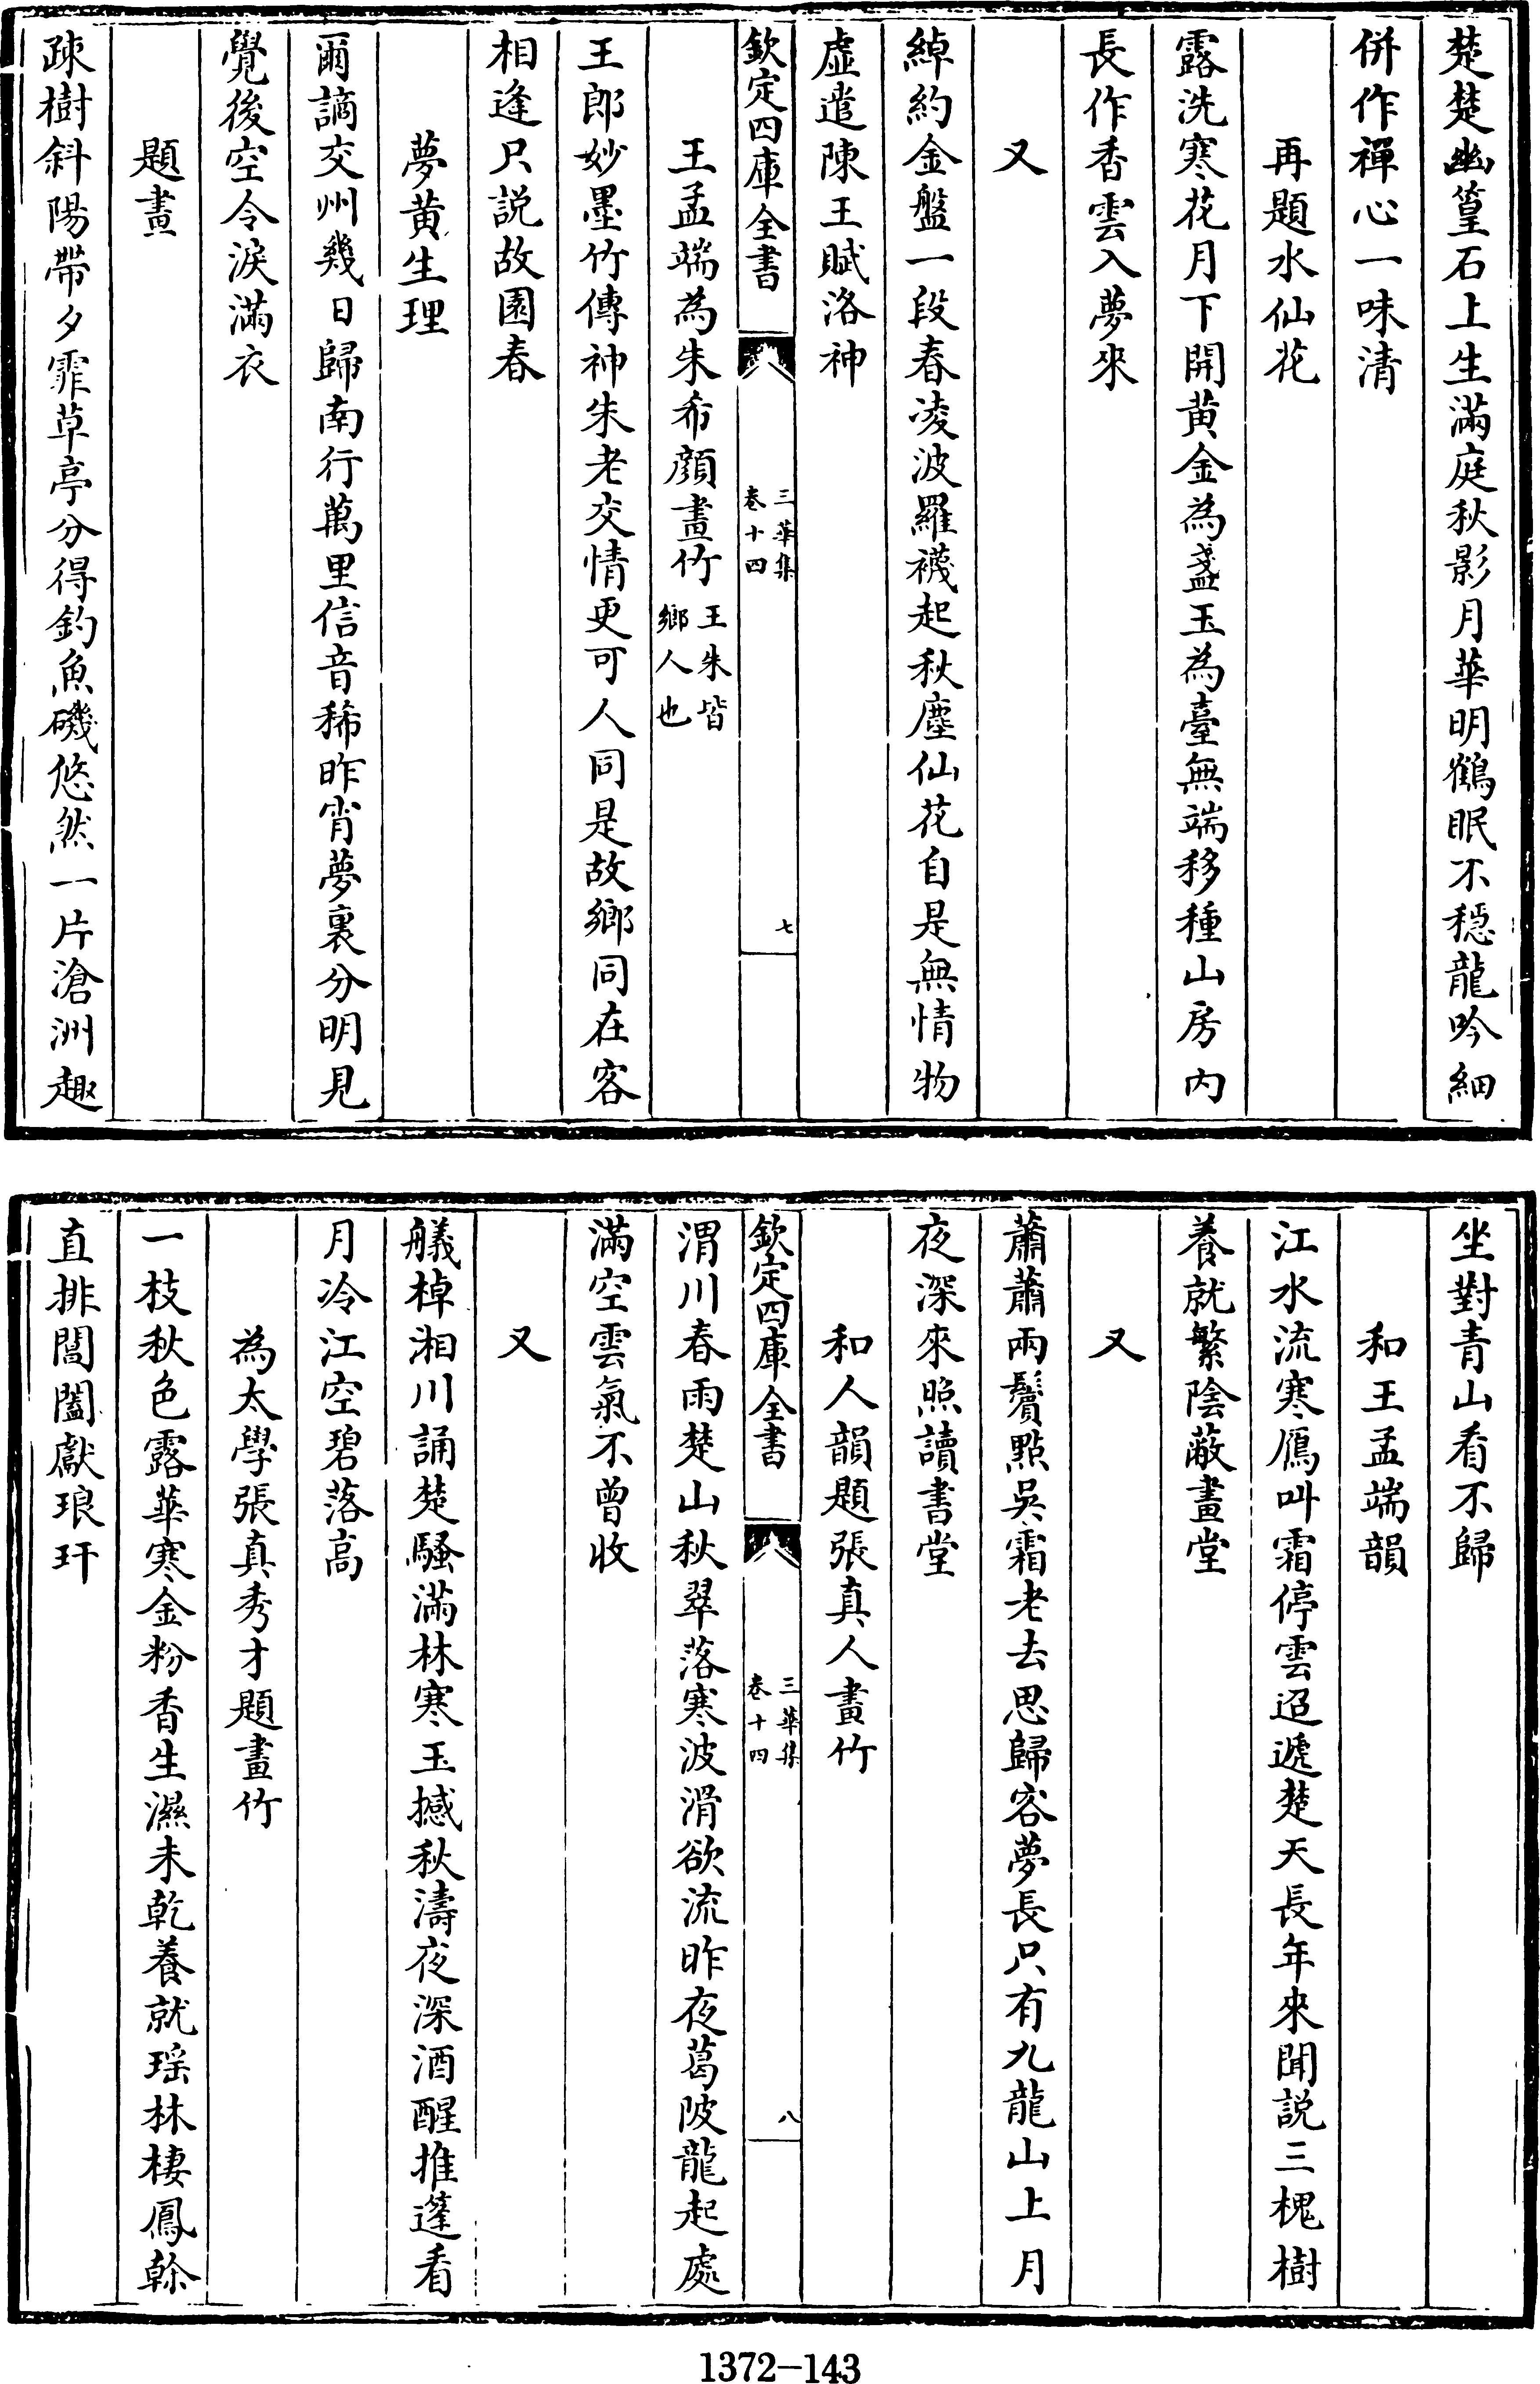 楚楚幽篁石上生滿庭秋影月華明鶴眠不穩龍吟細
併作禪心一味清
再題水仙花
露洗寒花月下開黄金為盞玉為臺無端移種山房内
長作香雲入夢來
又
綽約金盤一段春凌波羅襪起秋塵仙花自是無情物
虛遣陳王賦洛神
欽定四庫全書
三華集
卷十四
七
王孟端為朱希顔畫竹
王朱皆
鄉人也
王郎妙墨竹傳神朱老交情更可人同是故鄉同在客
相逢只説故園春
夢黄生理
爾謫交州幾日歸南行萬里信音稀昨宵夢裏分明見
覺後空令淚滿衣
題畫
疎樹斜陽帶夕霏草亭分得釣魚磯悠然一片滄洲趣
坐對青山看不歸
和王孟端韻
江水流寒鴈叫霜停雲迢遞楚天長年來聞説三槐樹
養就繁陰蔽畫堂
又
蕭蕭兩鬢點吳霜老去思歸客夢長只有九龍山上月
夜深來照讀書堂
和人韻題張真人畫竹
欽定四庫全書
三華集
卷十四
八
渭川春雨楚山秋翠落寒波滑欲流昨夜葛陂龍起處
滿空雲氣不曾收
又
艤棹湘川誦楚騷滿林寒玉撼秋濤夜深酒醒推篷看
月冷江空碧落高
為太學張真秀才題畫竹
一枝秋色露華寒金粉香生濕未乾養就瑶林棲鳳榦
直排閶闔獻琅玕
1372-143